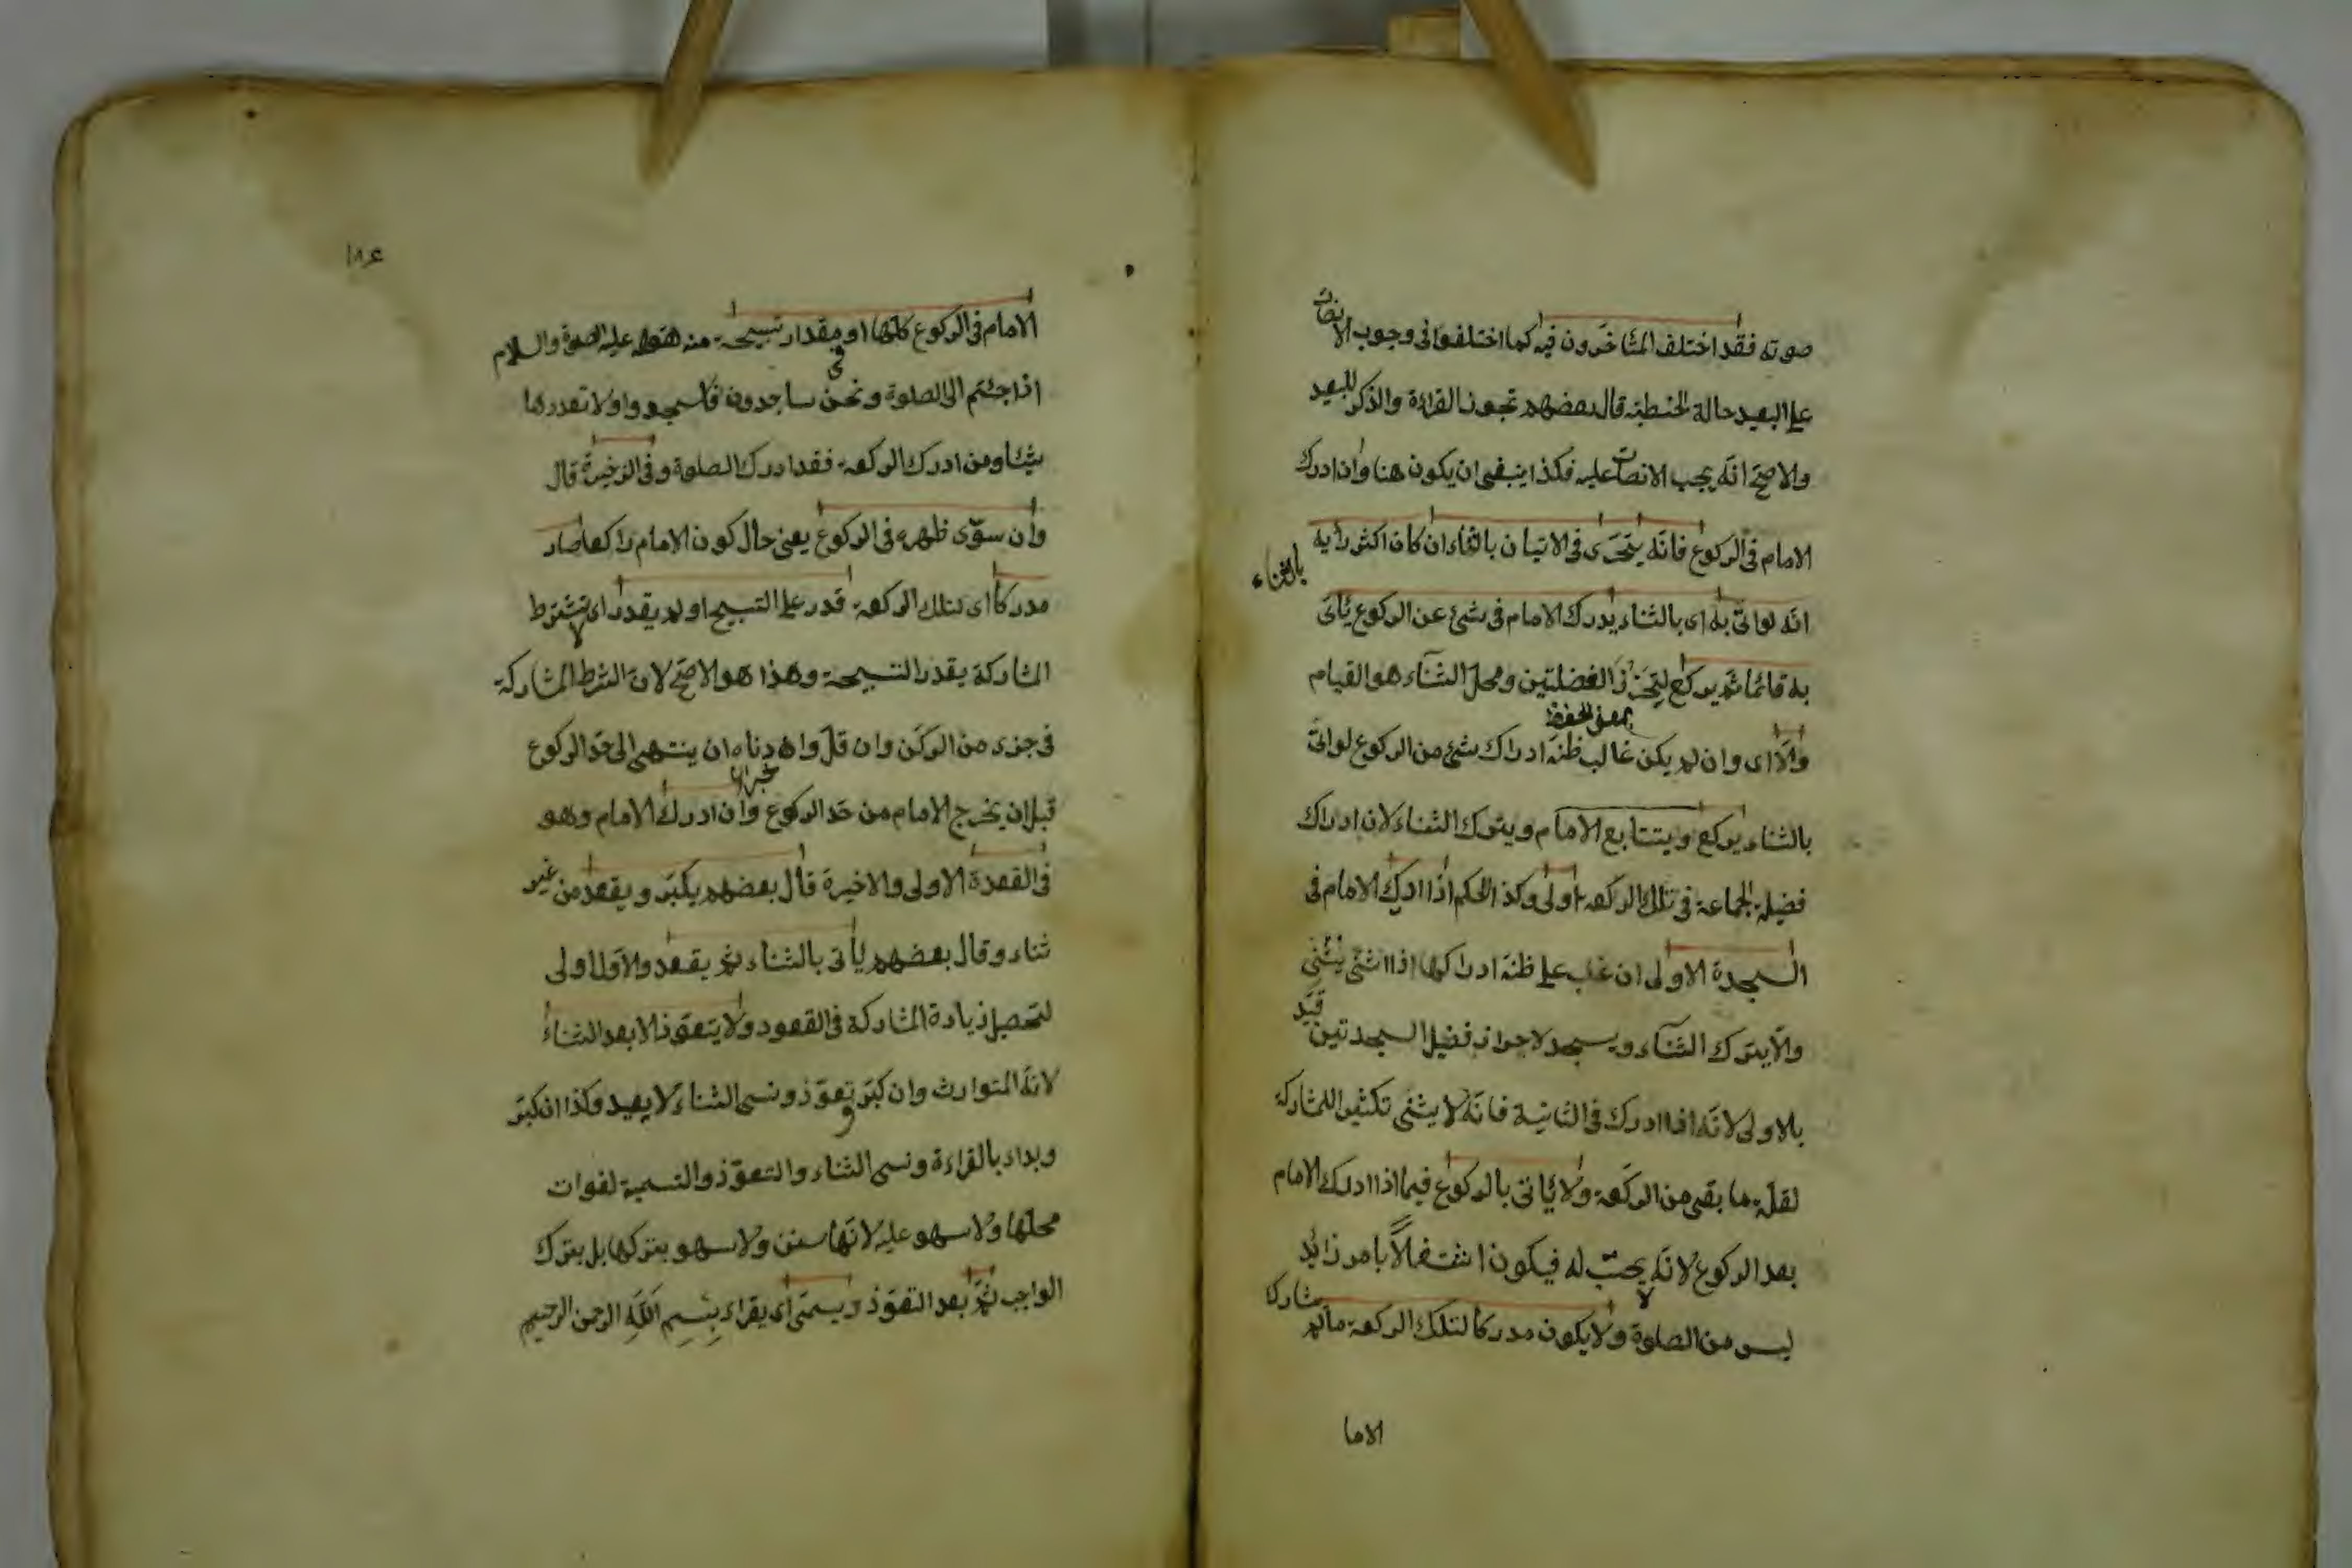 صوته فقد اختلف المتأخرون فيه كما اختلفوا فى وجوب الانصات
على البعيد حالة الخطبة قال بعضهم تجوز القراءة والذكر للبعيد
والاصح انه يجب الانصات عليه فكذا ينبغى ان يكون هنا وان ادرك
الامام فى الركوع فانه يتحرى فى الاتيان بالثناء ان كان اكثر رأيه
بالثناء
انه لو اتى به اى بالثناء يدرك الامام فى شئ عن الركوع يأتى
به قائما ثم يركع ليحرز الفضلتين ومحل الثناء هو القيام
بمعنى الحفظ
والا اى وان لم يكن غالب ظنه ادراك شئ من الركوع لو اتى
بالثناء يركع ويتتابع الامام ويترك الثناء لان ادراك
فضيلة الجماعة فى تلك الركعة اولى وكذا الحكم اذا ادرك الامام فى
السجدة الاولى ان غلب على ظنه ادراكها اذا اثنى يثنى
والا يترك الثناء ويسجد لاحراز فضيل السجدتين قيد
بالاولى لانه اذا ادرك فى الثانية فانه لا يثنى تكثيرا للمشاركة
لقلة ما بقى من الركعة ولا يأتى بالركوع فيما اذا ادرك الامام
بعد الركوع لانه لا يحتسب له فيكون اشتغالاً بامر زائد
ليس من الصلوة ولا يكون مدركا لتلك الركعة مالم يشارك
الاما
١٨٤
الامام فى الركوع كلها او فى مقدار تسبيحة منه فقط عليه الصلوة والسلام
اذا جئتم الى الصلوة ونحن ساجدون فاسجدوا ولا تعدوها
شيئا ومن ادرك الركعة فقد ادرك الصلوة وفى الذخيرة قال
وان سوّى ظهره فى الركوع يعنى حال كون الامام راكعا صار
مدركا اى لتلك الركعة قدر على التسبيح او لم يقدر اى لا تشترط
المشاركة بقدر التسبيحة وهذا هو الاصح لان الشرط المشاركة
فى جزء من الركن وان قلّ وادناه ان ينتهى الى حد الركوع
قبل ان يخرج الامام من حد الركوع وان ادرك الامام وهو
فى القعدة الاولى والاخيرة قال بعضهم يكبر ويقعد من غير
ثناء وقال بعضهم يأتى بالثناء ثم يقعد والاول اولى
لتحصيل زيادة المشاركة فى القعود ولا يتعوذ الا بعد الثناء
لانه المتوارث وان كبر وتعوّذ ونسى الثناء لا يعيد وكذا ان كبر
وبداء بالقراءة ونسى الثناء والتعوّذ والتسمية لفوات
محلها ولا سهو عليه لانها سنن ولا سهو بتركها بل بترك
الواجب ثم بعد التعوّذ ويسمّى اى يقراء بِسْمِ اللّٰهِ الرحمن الرحيم